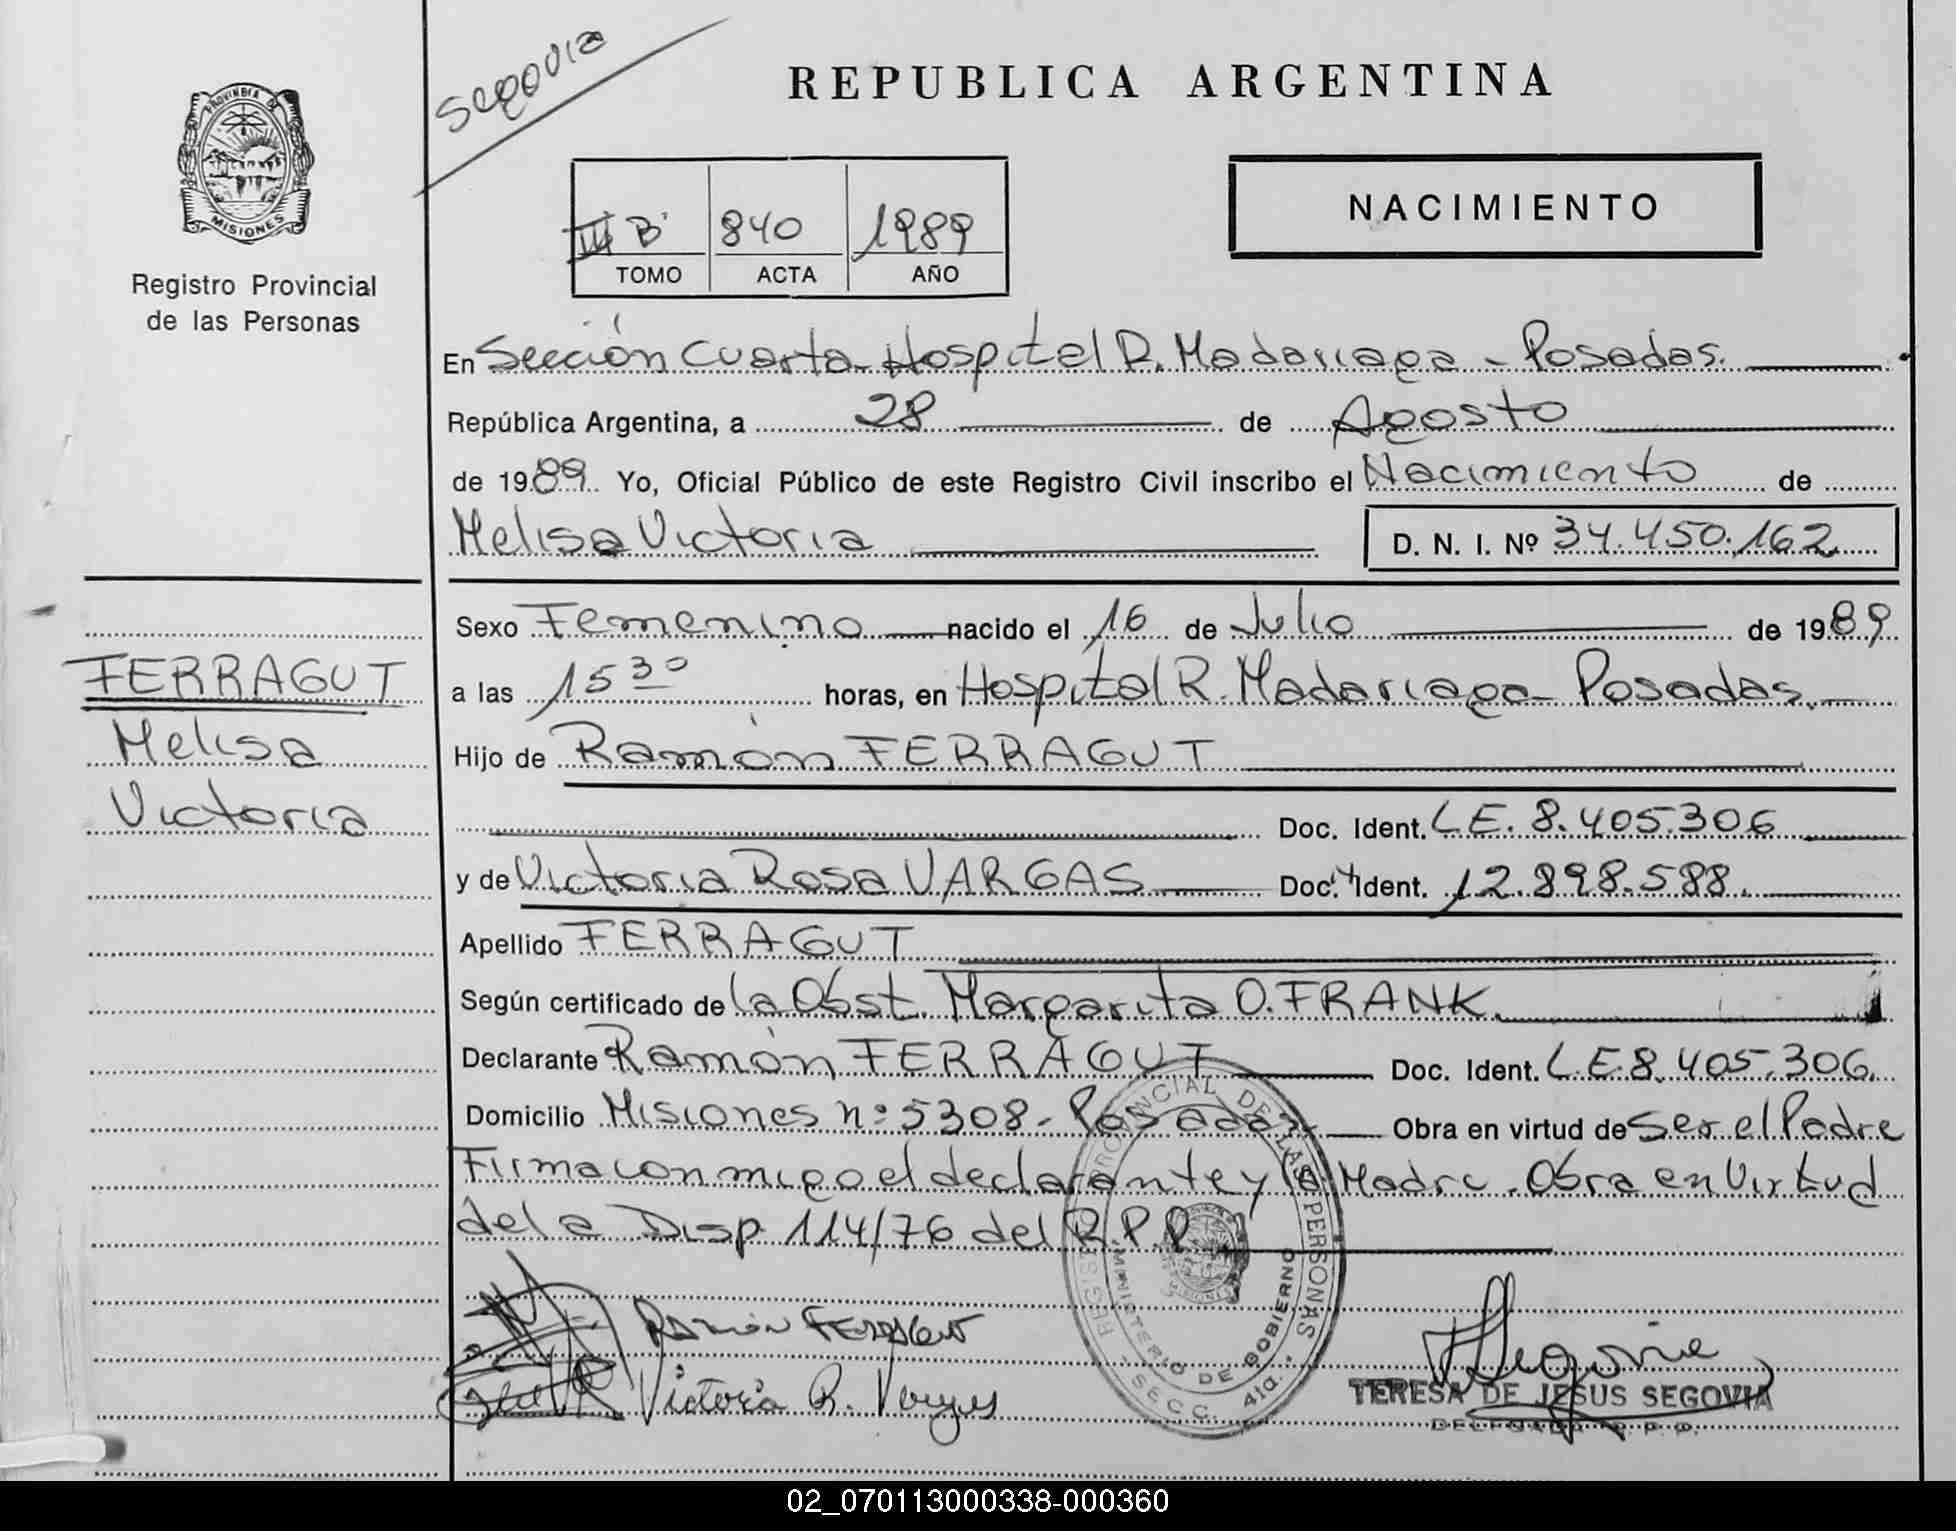 Segovia
REPUBLICA ARGENTINA
PROVINCIA DE
MISIONES
Registro Provincial
de las Personas
III B 840 1989
TOMO ACTA AÑO
NACIMIENTO
En Sección Cuarta - Hospital R. Madariaga - Posadas.
República Argentina, a 28 de Agosto
de 1989 Yo, Oficial Público de este Registro Civil inscribo el Nacimiento de
Melisa Victoria D. N. I. Nº 34.450.162
Sexo Femenino nacido el 16 de Julio de 1989
a las 15 30 horas, en Hospital R. Madariaga - Posadas.
Hijo de Ramón FERRAGUT
Doc. Ident. LE. 8.405.306
y de Victoria Rosa VARGAS Doc. Ident. 12.898.588.
Apellido FERRAGUT
Según certificado de la Obst. Margarita O. FRANK.
Declarante Ramón FERRAGUT Doc. Ident. L.E. 8.405.306.
Domicilio Misiones nº 5308 - Posadas Obra en virtud de Ser el Padre
Firma conmigo el declarante y la Madre. Obra en Virtud
de la Disp. 114/76 del R.P.P.
FERRAGUT
Melisa
Victoria
Ramón Ferragut
Victoria R. Vargas
REGISTRO PROVINCIAL DE LAS PERSONAS
MINISTERIO DE GOBIERNO
SECC. 4ta.
Segovia
TERESA DE JESUS SEGOVIA
DELEGADA R. P. P.
02_070113000338-000360